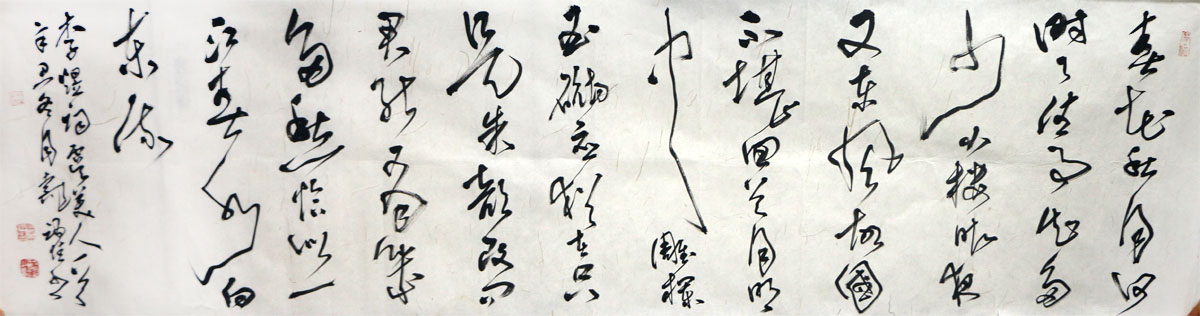 春花秋月何
時了往事知多
少小楼昨夜
又东风故國
不堪回首月明
中雕欄
玉砌应猶在只
是朱颜改问
君能有幾
多愁恰似一
江春水向
东流
李煜词虞美人一首
辛丑冬月